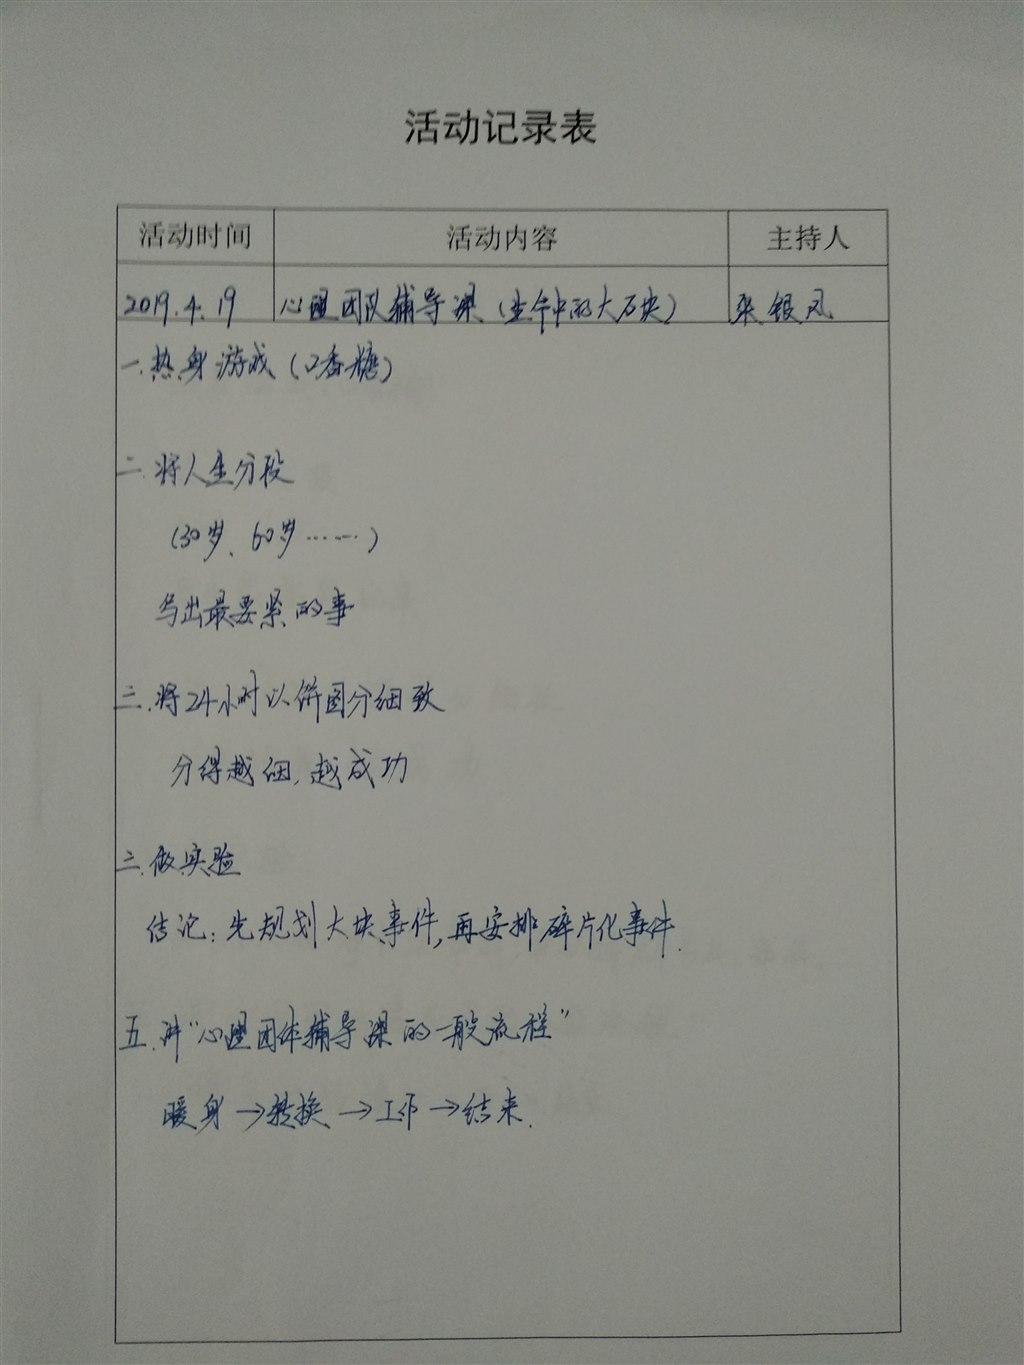 活动记录表
活动时间 活动内容 主持人
2019.4.19 心理团队辅导课(生命中的大石块) 张银凤
一.热身游戏(口香糖)
二.将人生分段
(30岁、60岁……)
写出最要紧的事
三.将24小时以饼图分细致
分得越细,越成功
三.做实验
结论:先规划大块事件,再安排碎片化事件.
五.讲“心理团体辅导课的一般流程”
暖身→转换→工作→结束.